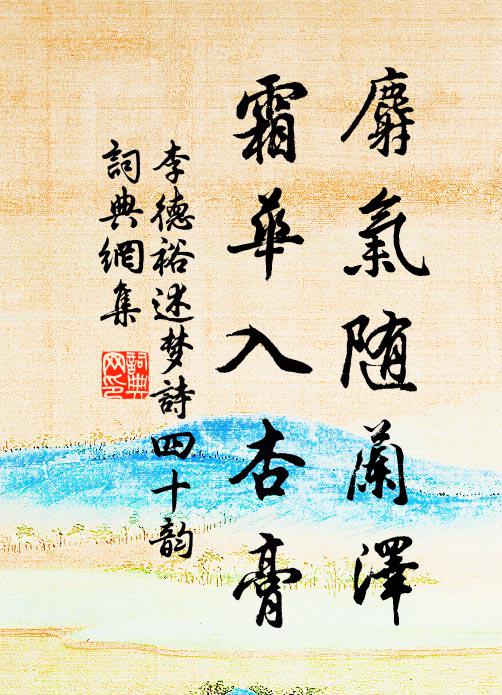 麝氣随蘭澤
霜華入杏膏
李德裕述梦詩四十韵
詞典網集
詞典网印